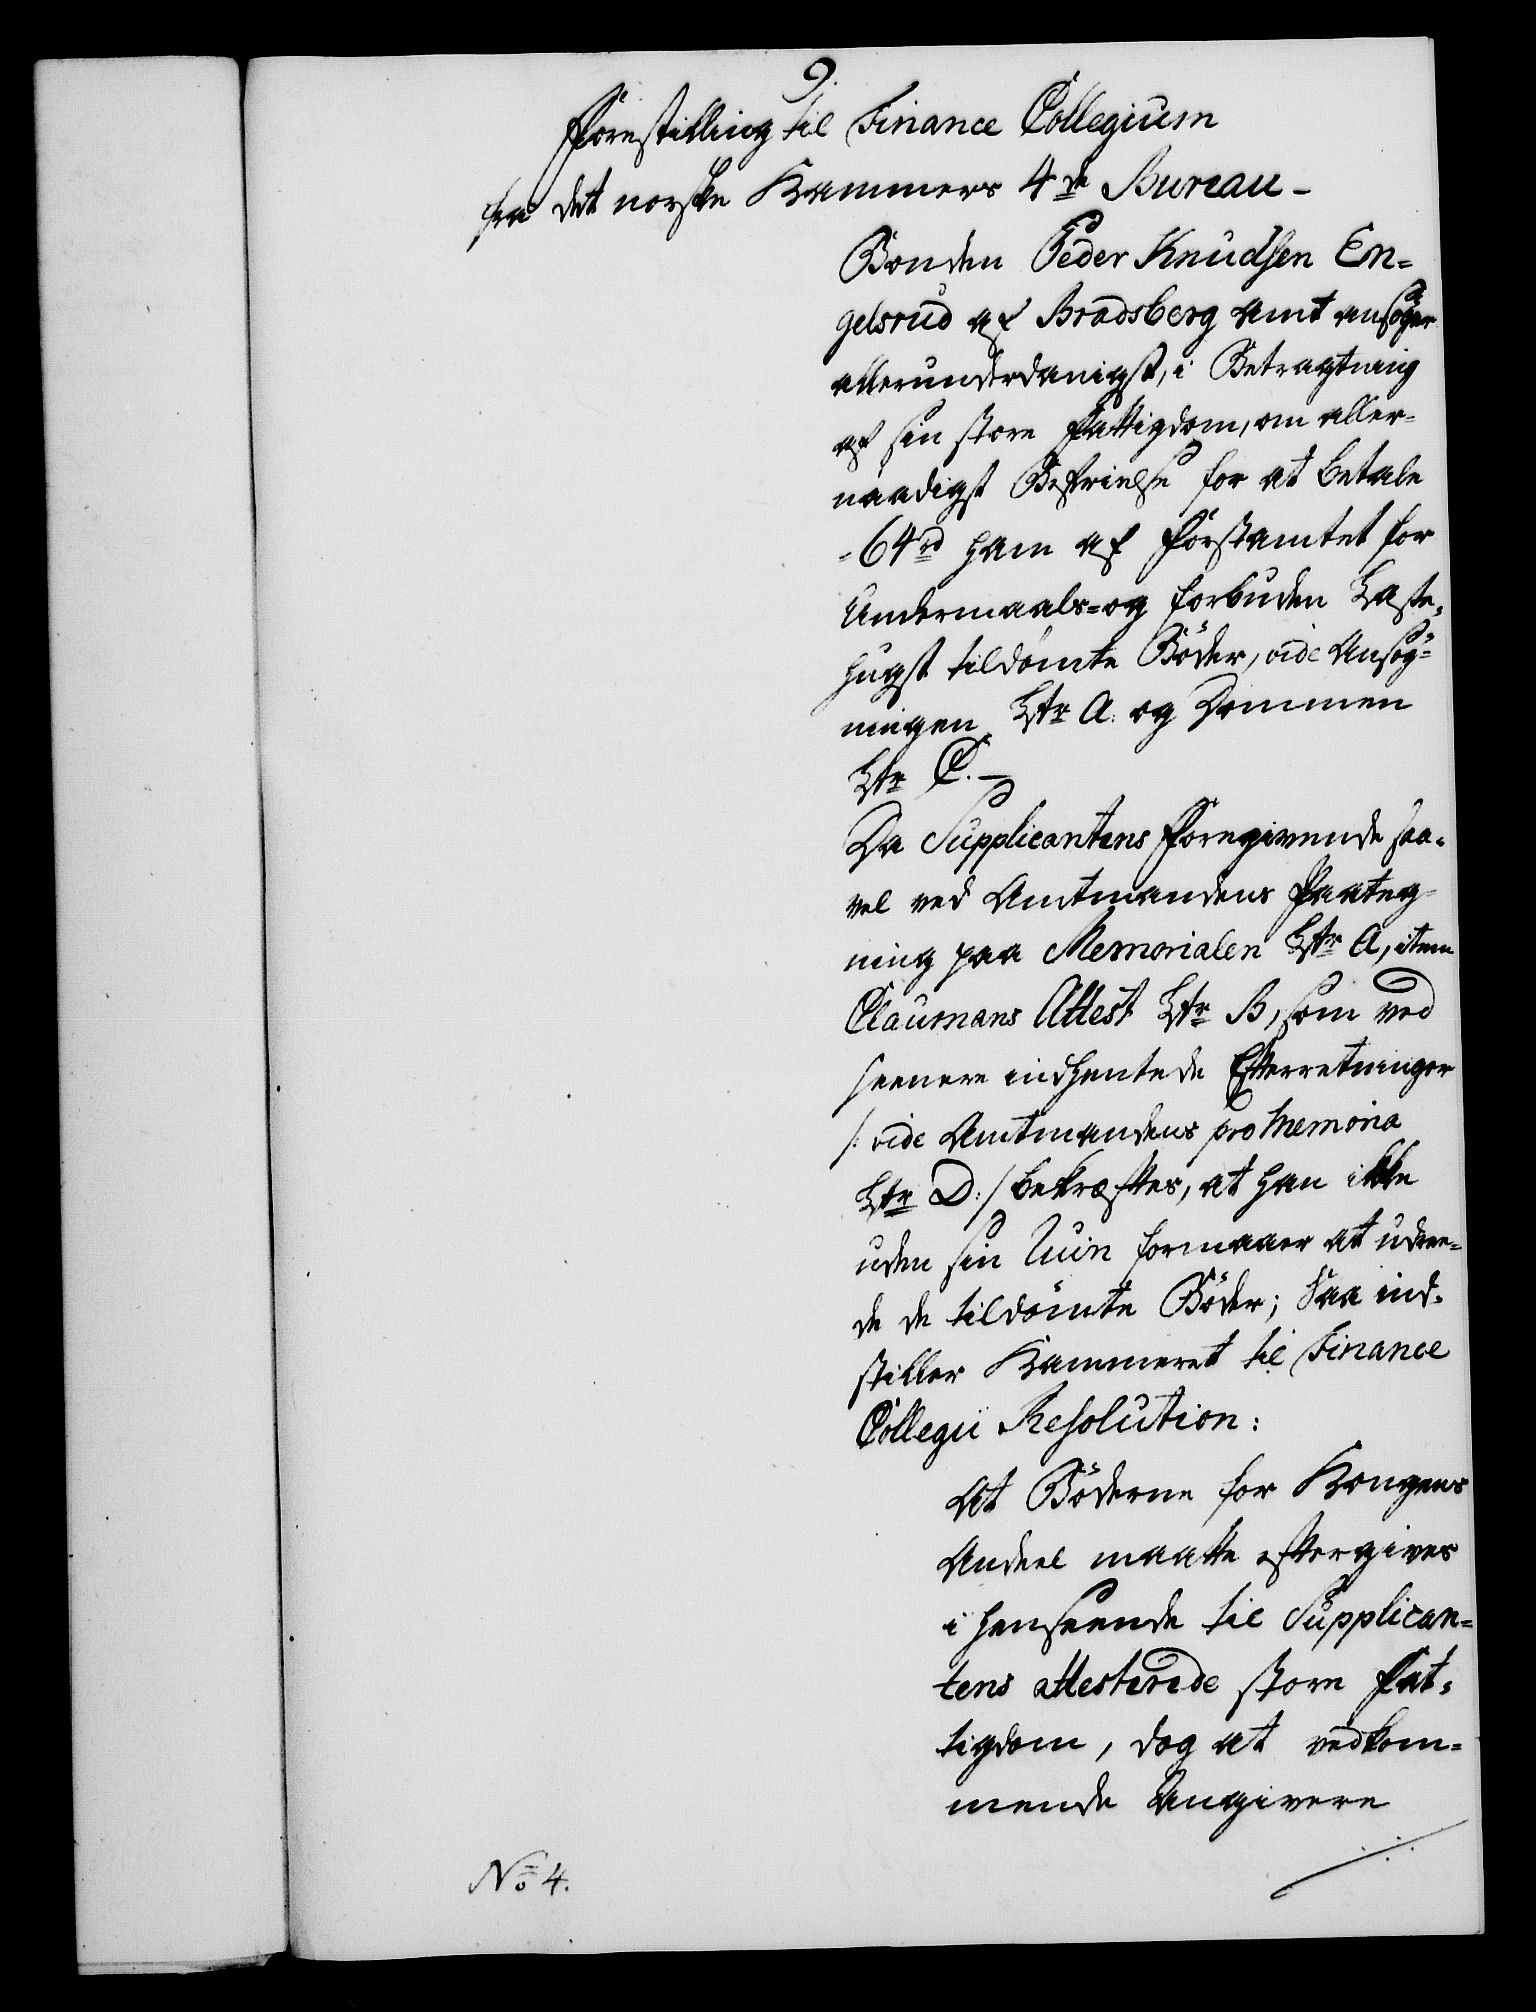 9.
Forestilling til Finance Collegium
fra det norske Kammers 4de Bureau-
Bonden Peder Knudsen En=
gelsrud af Bradsberg Amt ansøger
allerunderdanigst, i Betragtning
af sin store Fattigdom, om aller=
naadigst Befrielse for at betale
-64rd ham af Forstamtet for
Undermaals-og forbuden Laste=
hugst tildømte Bøder, vide Ansøg=
ningen Ltr A. og Dommen
Ltr C.-
Da Supplicantens Foregivende saa-
vel ved Amtmandens Paateg-
ning paa Memorialen Ltr A, item
Claumans Attest Ltr B, som ved
seenere indhentede Efterretninger
/: vide Amtmandens pro Memoria
Ltr D:/ bekræftes, at han ikke
uden sin Ruin formaaer at udree-
de de tildømte Bøder; Saa ind-
stiller Kammeret til Finance
Collegii Resolution:
At Bøderne for Kongens
Andeel maatte eftergives
i Henseende til Supplican=
tens attesterede store Fat-
tigdom, dog at vedkom=
mende Angivere
No 4.